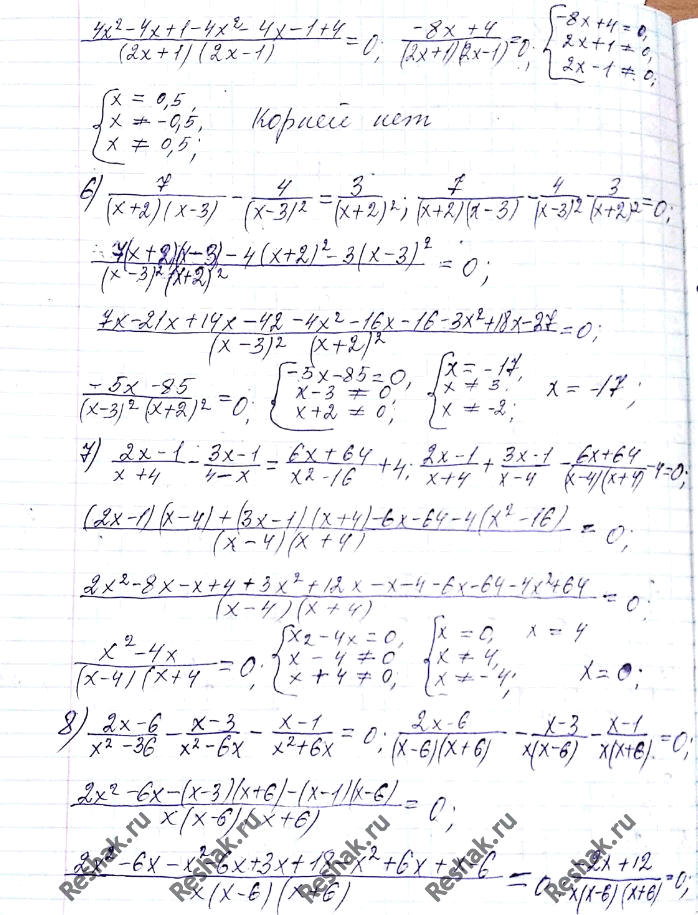 (4x² - 4x + 1 - 4x² - 4x - 1 + 4)/((2x+1)(2x-1)) = 0; (-8x+4)/((2x+1)(2x-1)) = 0; { -8x+4 = 0, 2x+1 ≠ 0, 2x-1 ≠ 0;
{ x = 0,5, x ≠ -0,5, x ≠ 0,5; Корней нет
6) 7/((x+2)(x-3)) - 4/(x-3)² = 3/(x+2)²; 7/((x+2)(x-3)) - 4/(x-3)² - 3/(x+2)² = 0;
(7(x+2)(x-3) - 4(x+2)² - 3(x-3)²)/((x-3)²(x+2)²) = 0;
(7x - 21x + 14x - 42 - 4x² - 16x - 16 - 3x² + 18x - 27)/((x-3)² (x+2)²) = 0;
(-5x - 85)/((x-3)²(x+2)²) = 0; { -5x-85 = 0, x-3 ≠ 0, x+2 ≠ 0; { x = -17, x ≠ 3, x ≠ -2; x = -17;
7) (2x-1)/(x+4) - (3x-1)/(4-x) = (6x+64)/(x²-16) + 4; (2x-1)/(x+4) + (3x-1)/(x-4) - (6x+64)/((x-4)(x+4)) - 4 = 0;
((2x-1)(x-4) + (3x-1)(x+4) - 6x - 64 - 4(x²-16))/((x-4)(x+4)) = 0;
(2x² - 8x - x + 4 + 3x² + 12x - x - 4 - 6x - 64 - 4x² + 64)/((x-4)(x+4)) = 0;
(x² - 4x)/((x-4)(x+4 = 0; { x2-4x = 0, x-4 ≠ 0, x+4 ≠ 0; { x = 0, x = 4 x ≠ 4, x ≠ -4; x = 0;
8) (2x-6)/(x²-36) - (x-3)/(x²-6x) - (x-1)/(x²+6x) = 0; (2x-6)/((x-6)(x+6)) - (x-3)/(x(x-6)) - (x-1)/(x(x+6)) = 0;
(2x² - 6x - (x-3)(x+6) - (x-1)(x-6))/(x(x-6)(x+6)) = 0;
(2x² - 6x - x² - 6x + 3x + 18 - x² + 6x + x - 6)/(x(x-6)(x+6)) = 0; (-2x+12)/(x(x-6)(x+6)) = 0;
Reshak.ru
Reshak.ru
Reshak.ru
Reshak.ru
Reshak.ru